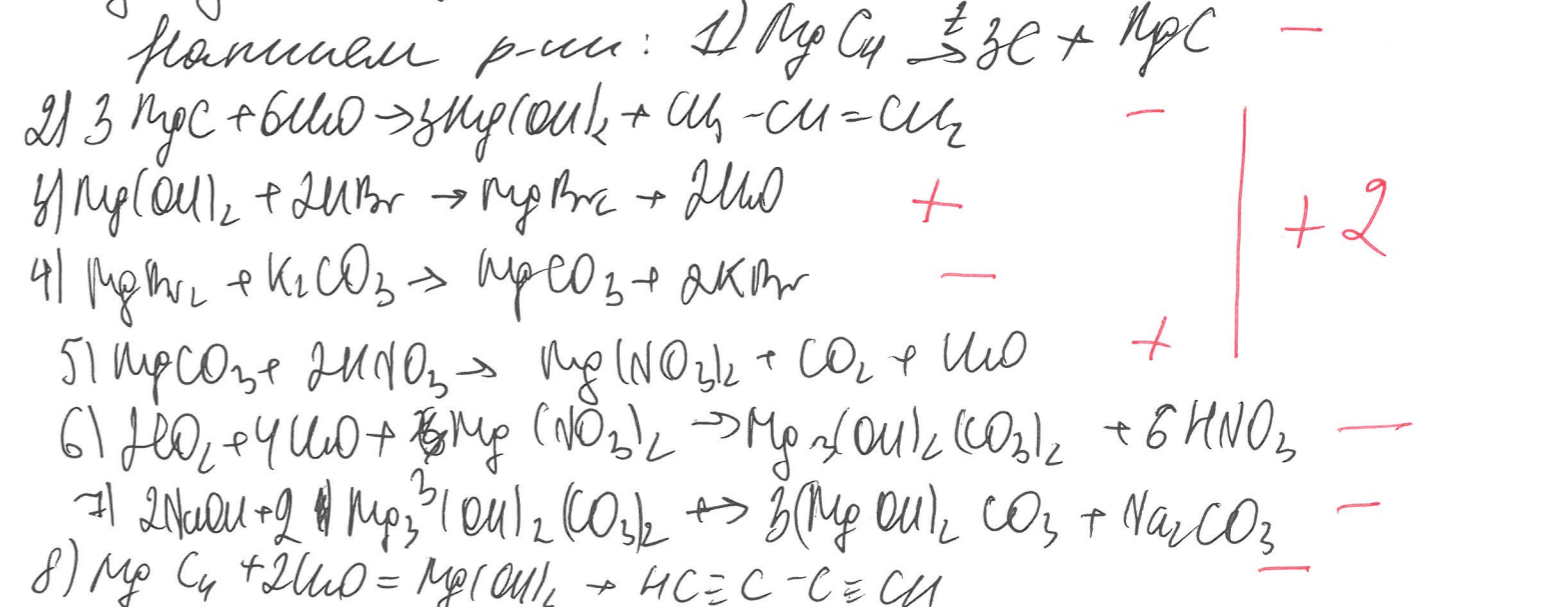 Напишем р-ции: 1) MgC4 t→ 3C + MgC −
2) 3MgC + 6H2O → 3Mg(OH)2 + CH3 - CH = CH2 −
3) Mg(OH)2 + 2HBr → MgBr2 + 2H2O +
+ 2
4) MgBr2 + K2CO3 → MgCO3 + 2KBr −
5) MgCO3 + 2HNO3 → Mg(NO3)2 + CO2 + H2O +
6) 2CO2 + 4H2O + 3Mg(NO3)2 → Mg3(OH)2(CO3)2 + 6HNO3 −
7) 2NaOH + 2 Mg3(OH)2(CO3)2 ↔ 3(MgOH)2CO3 + Na2CO3 −
8) MgC4 + 2H2O = Mg(OH)2 + HC≡C - C≡CH −